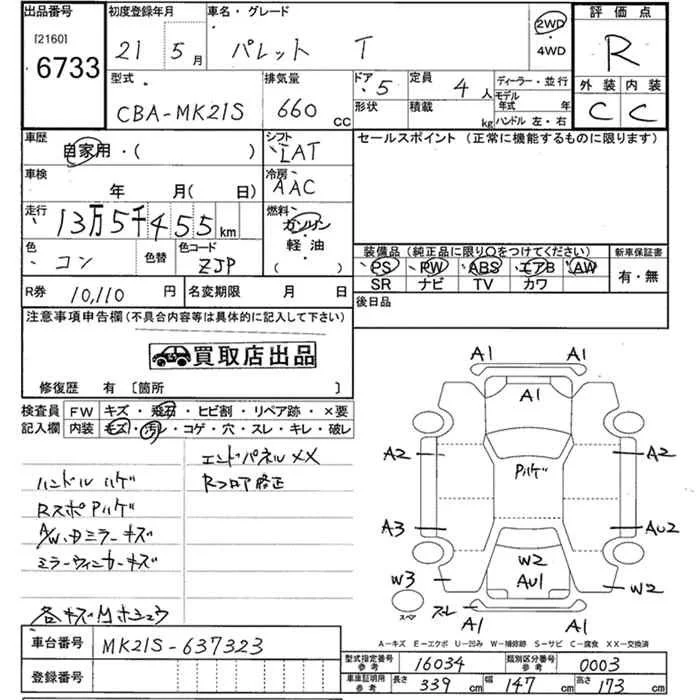 出品番号 初度登録年月 車名・グレード 評価点
[2160] 6733 21 5月 パレット T 2WD 4WD R
型式 排気量 ドア 5 定員 4人 ディーラー・並行 外装 内装
CBA-MK21S 660 cc 形状 積載 kg モデル年式 年 ハンドル 左・右 C C
車歴 自家用・( ) シフト LAT セールスポイント (正常に機能するものに限ります)
車検 年 月(日) 冷房 AAC
走行 13万5千455km 燃料 ガソリン 軽油 ( )
色 コン 色替 色コード ZJP
装備品(純正品に限り○をつけてください) 新車保証書
PS PW ABS エアB AW 有・無
SR ナビ TV カワ
R券 10,110円 名変期限 月 日 後日品
注意事項申告欄(不具合内容等は具体的に記入して下さい)
買取店出品
修復歴 有 〔箇所 〕
検査員 FW キズ・飛石・ヒビ割・リペア跡・×要
記入欄 内装 キズ・汚レ・コゲ・穴・スレ・キレ・破レ
エンドパネルXX
ハンドルハゲ Rフロア修正
RスポPハゲ
A/W・Dミラーキズ
ミラーウィンカーキズ
各キズMホシュウ
A1 A1
A1
A2 A2
Pハゲ
A3 AU2
W2
W3 AU1 W2
スペア スレ
A1 A1
A-キズ E-エクボ U-凹み W-補修跡 S-サビ C-腐食 XX-交換済
車台番号 MK21S-637323
登録番号
型式指定番号 参考 16034 類別区分番号 参考 0003
車庫証明用 参考 長さ 339cm 幅 147cm 高さ 173cm